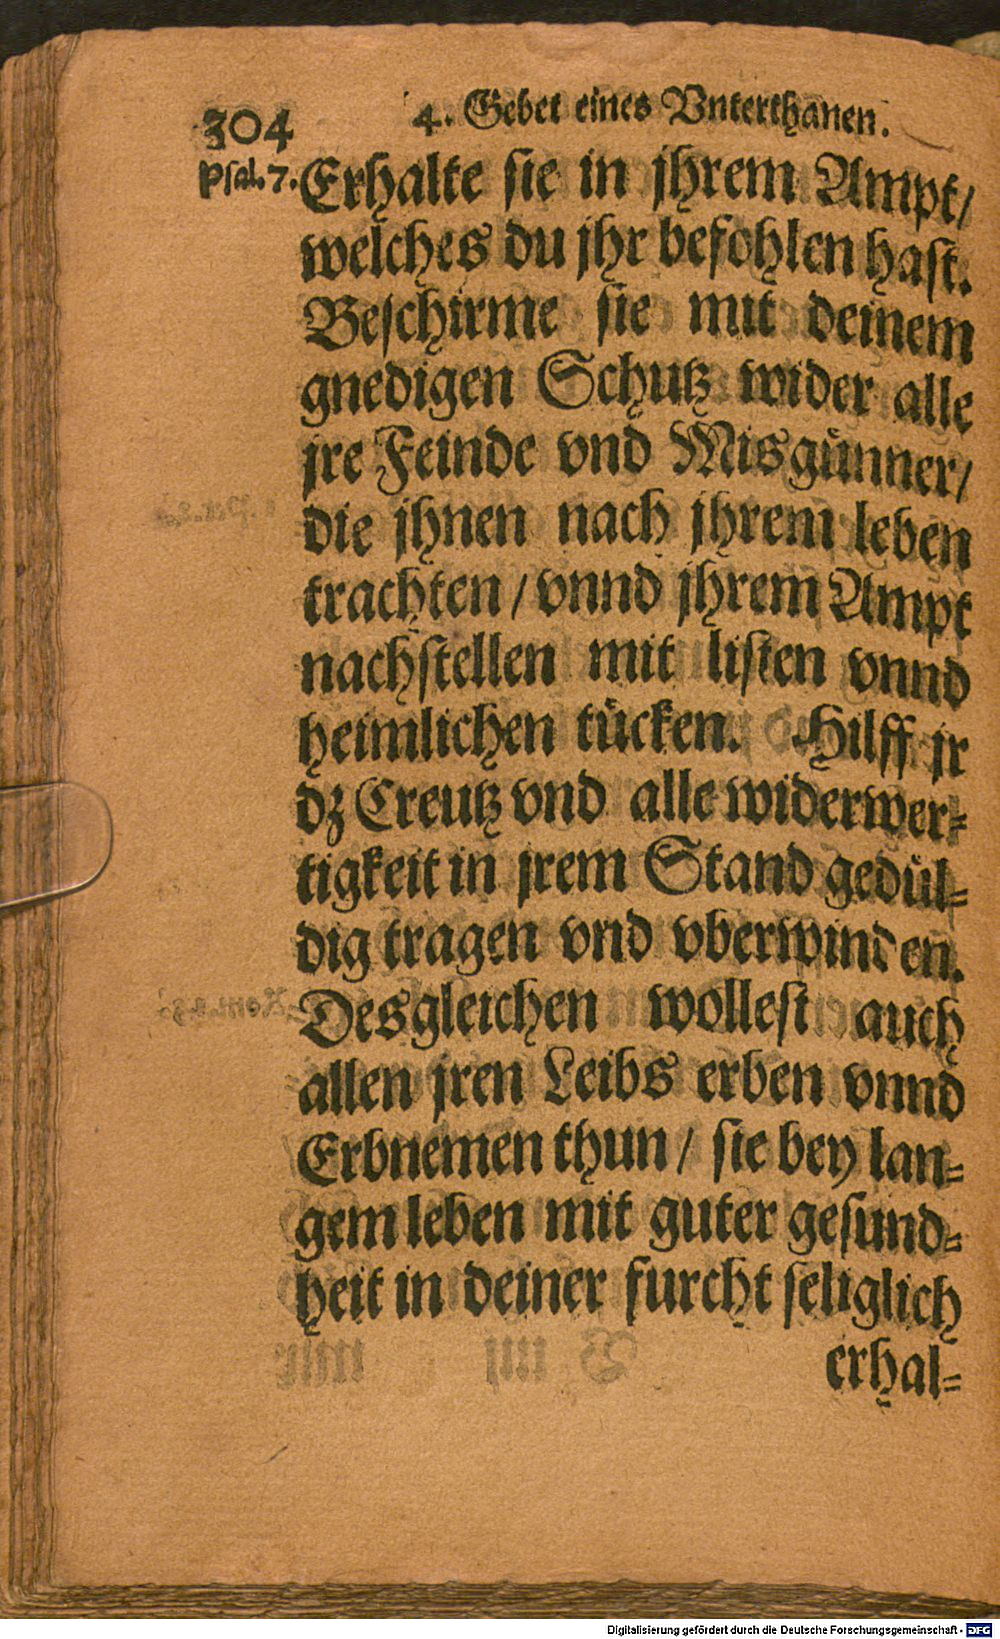 304 4. Gebet eines Vnterthanen.
Psal. 7. Erhalte sie in jhrem Ampt/
welches du jhr befohlen hast.
Beschirme sie mit deinem
gnedigen Schutz wider alle
jre Feinde vnd Misgünner/
die jhnen nach jhrem leben
trachten / vnnd jhrem Ampt
nachstellen mit listen vnnd
heimlichen tücken. Hilff jr
dz Creutz vnd alle widerwer-
tigkeit in jrem Stand gedül-
dig tragen vnd vberwinden.
Desgleichen wollest auch
allen jren Leibs erben vnnd
Erbnemen thun / sie bey lan-
gem leben mit guter gesund-
heit in deiner furcht seliglich
erhal-
Digitalisierung gefördert durch die Deutsche Forschungsgemeinschaft - DFG